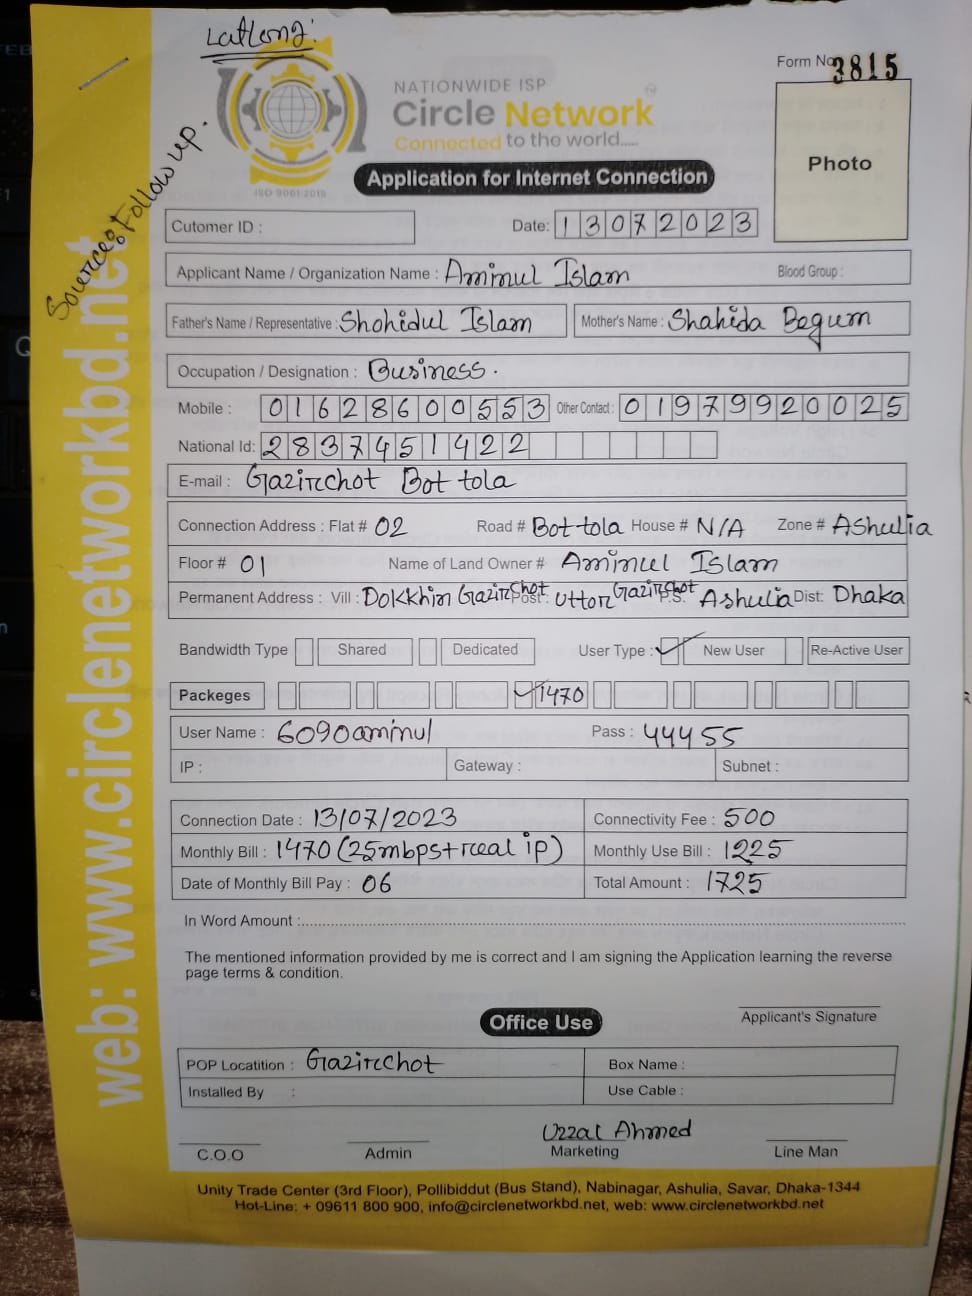 LatLong:
Form No 3815
NATIONWIDE ISP
Circle Network
Connected to the world.....
ISO 9001:2015
Photo
Application for Internet Connection
Source: Follow up.
Cutomer ID :
Date: 13072023
Applicant Name / Organization Name : Aminul Islam Blood Group :
Father's Name / Representative : Shohidul Islam Mother's Name : Shahida Begum
Occupation / Designation : Business.
Mobile : 01628600553 Other Contact : 01979920025
National Id: 2837451422
E-mail : Gazirchot Bot tola
Connection Address : Flat # 02 Road # Bot tola House # N/A Zone # Ashulia
Floor # 01 Name of Land Owner # Aminul Islam
Permanent Address : Vill : Dokkhin Gazirchot Post: Uttor Gazirchot P.S: Ashulia Dist: Dhaka
Bandwidth Type Shared Dedicated User Type : New User Re-Active User
Packeges 1470
User Name : 6090aminul Pass : 44455
IP : Gateway : Subnet :
Connection Date : 13/07/2023 Connectivity Fee : 500
Monthly Bill : 1470 (25mbps+real ip) Monthly Use Bill : 1225
Date of Monthly Bill Pay : 06 Total Amount : 1725
In Word Amount :
The mentioned information provided by me is correct and I am signing the Application learning the reverse
page terms & condition.
Applicant's Signature
Office Use
POP Locatition : Gazirchot Box Name :
Installed By : Use Cable :
Uzzal Ahmed
C.O.O Admin Marketing Line Man
Unity Trade Center (3rd Floor), Pollibiddut (Bus Stand), Nabinagar, Ashulia, Savar, Dhaka-1344
Hot-Line: + 09611 800 900, info@circlenetworkbd.net, web: www.circlenetworkbd.net
web: www.circlenetworkbd.net